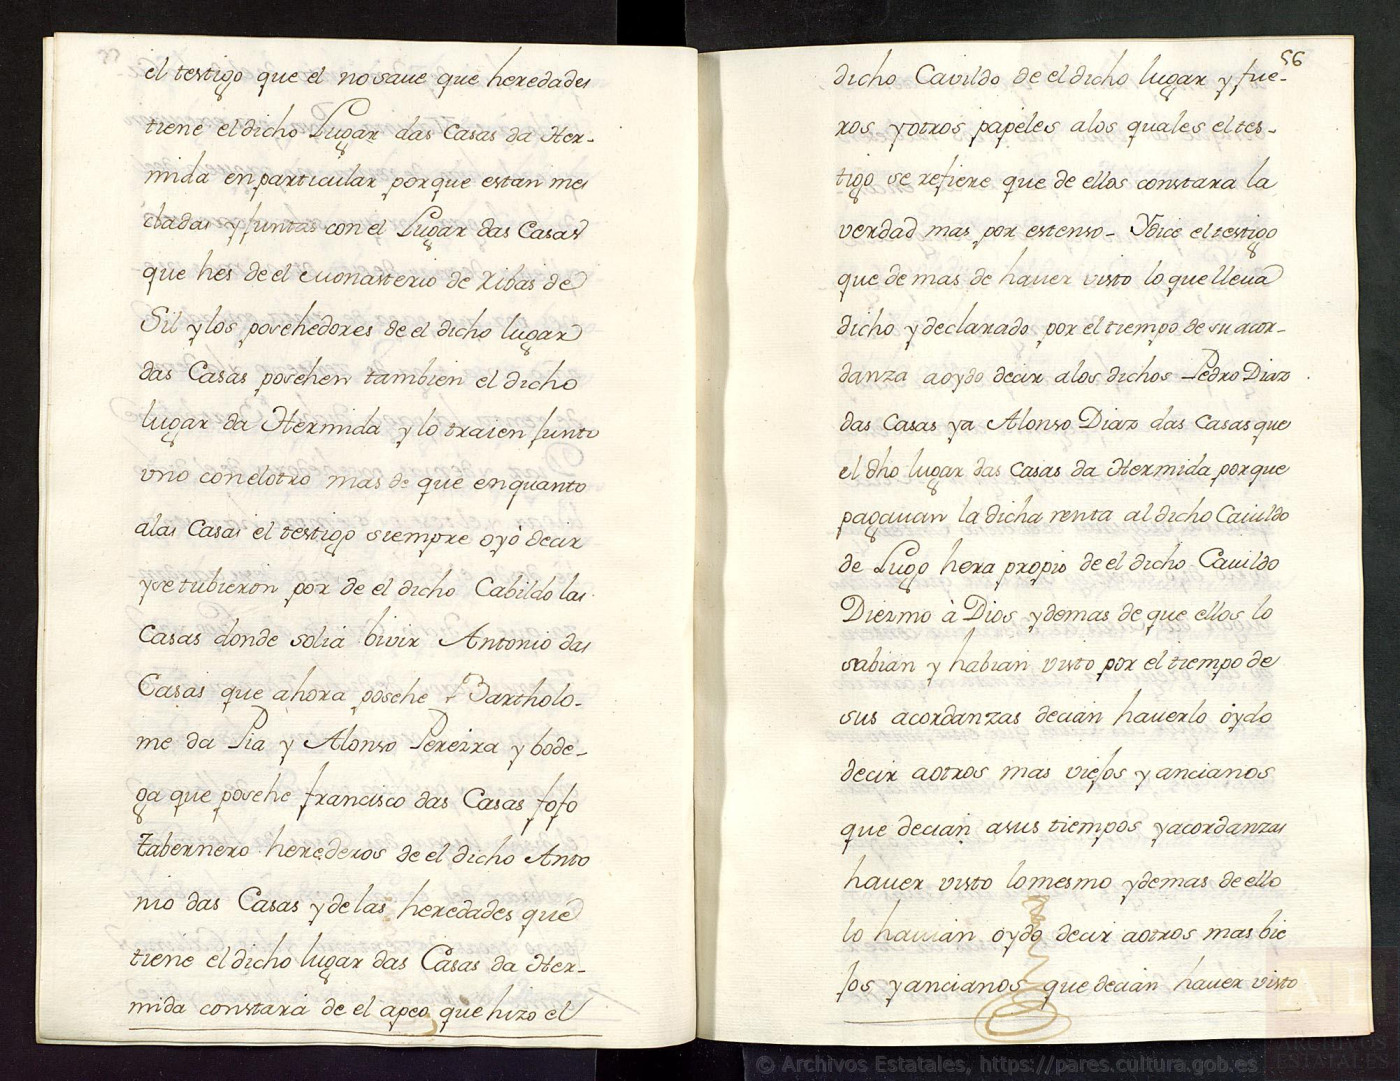 el testigo que el no saue que heredades
tiene el dicho Lugar das Casas da Her-
mida en particular porque estan mes
cladas y juntas con el Lugar das Casas
que hes de el Monasterio de Ribas de
Sil y los posehedores de el dicho lugar
das Casas posehen tambien el dicho
lugar da Hermida y lo traien junto
uno con el otro mas de que en quanto
alas Casas el testigo siempre oyó decir
y se tubieron por de el dicho Cabildo las
Casas donde solia bivir Antonio das
Casas que ahora posehe Bartholo-
me da Pia y Alonso Pereira y bode-
ga que posehe francisco das Casas jojo
Tabernero herederos de el dicho Anto
nio das Casas y de las heredades que
tiene el dicho lugar das Casas da Her-
mida constará de el apeo que hizo el
56
dicho Cavildo de el dicho lugar y fue-
ros y otros papeles a los quales el tes-
tigo se refiere que de ellos constara la
verdad mas por estenso- Y dice el testigo
que de mas de hauer visto lo que lleua
dicho y declarado por el tiempo de su acor-
danza a oydo decir a los dichos Pedro Diaz
das Casas y a Alonso Diaz das Casas que
el dho lugar das Casas da Hermida porque
pagauan la dicha renta al dicho Cauildo
de Lugo hera propio de el dicho Cauildo
Diezmo à Dios y demas de que ellos lo
sabian y habian visto por el tiempo de
sus acordanzas decian hauerlo óydo
decir a otros mas viejos y ancianos
que decian a sus tiempos y acordanzas
hauer visto lo mesmo y demas de ello
lo hauian óydo decir a otros mas bie
jos y ancianos que decian hauer visto
© Archivos Estatales, https://pares.cultura.gob.es
ARCHIVOS
ESTATALES